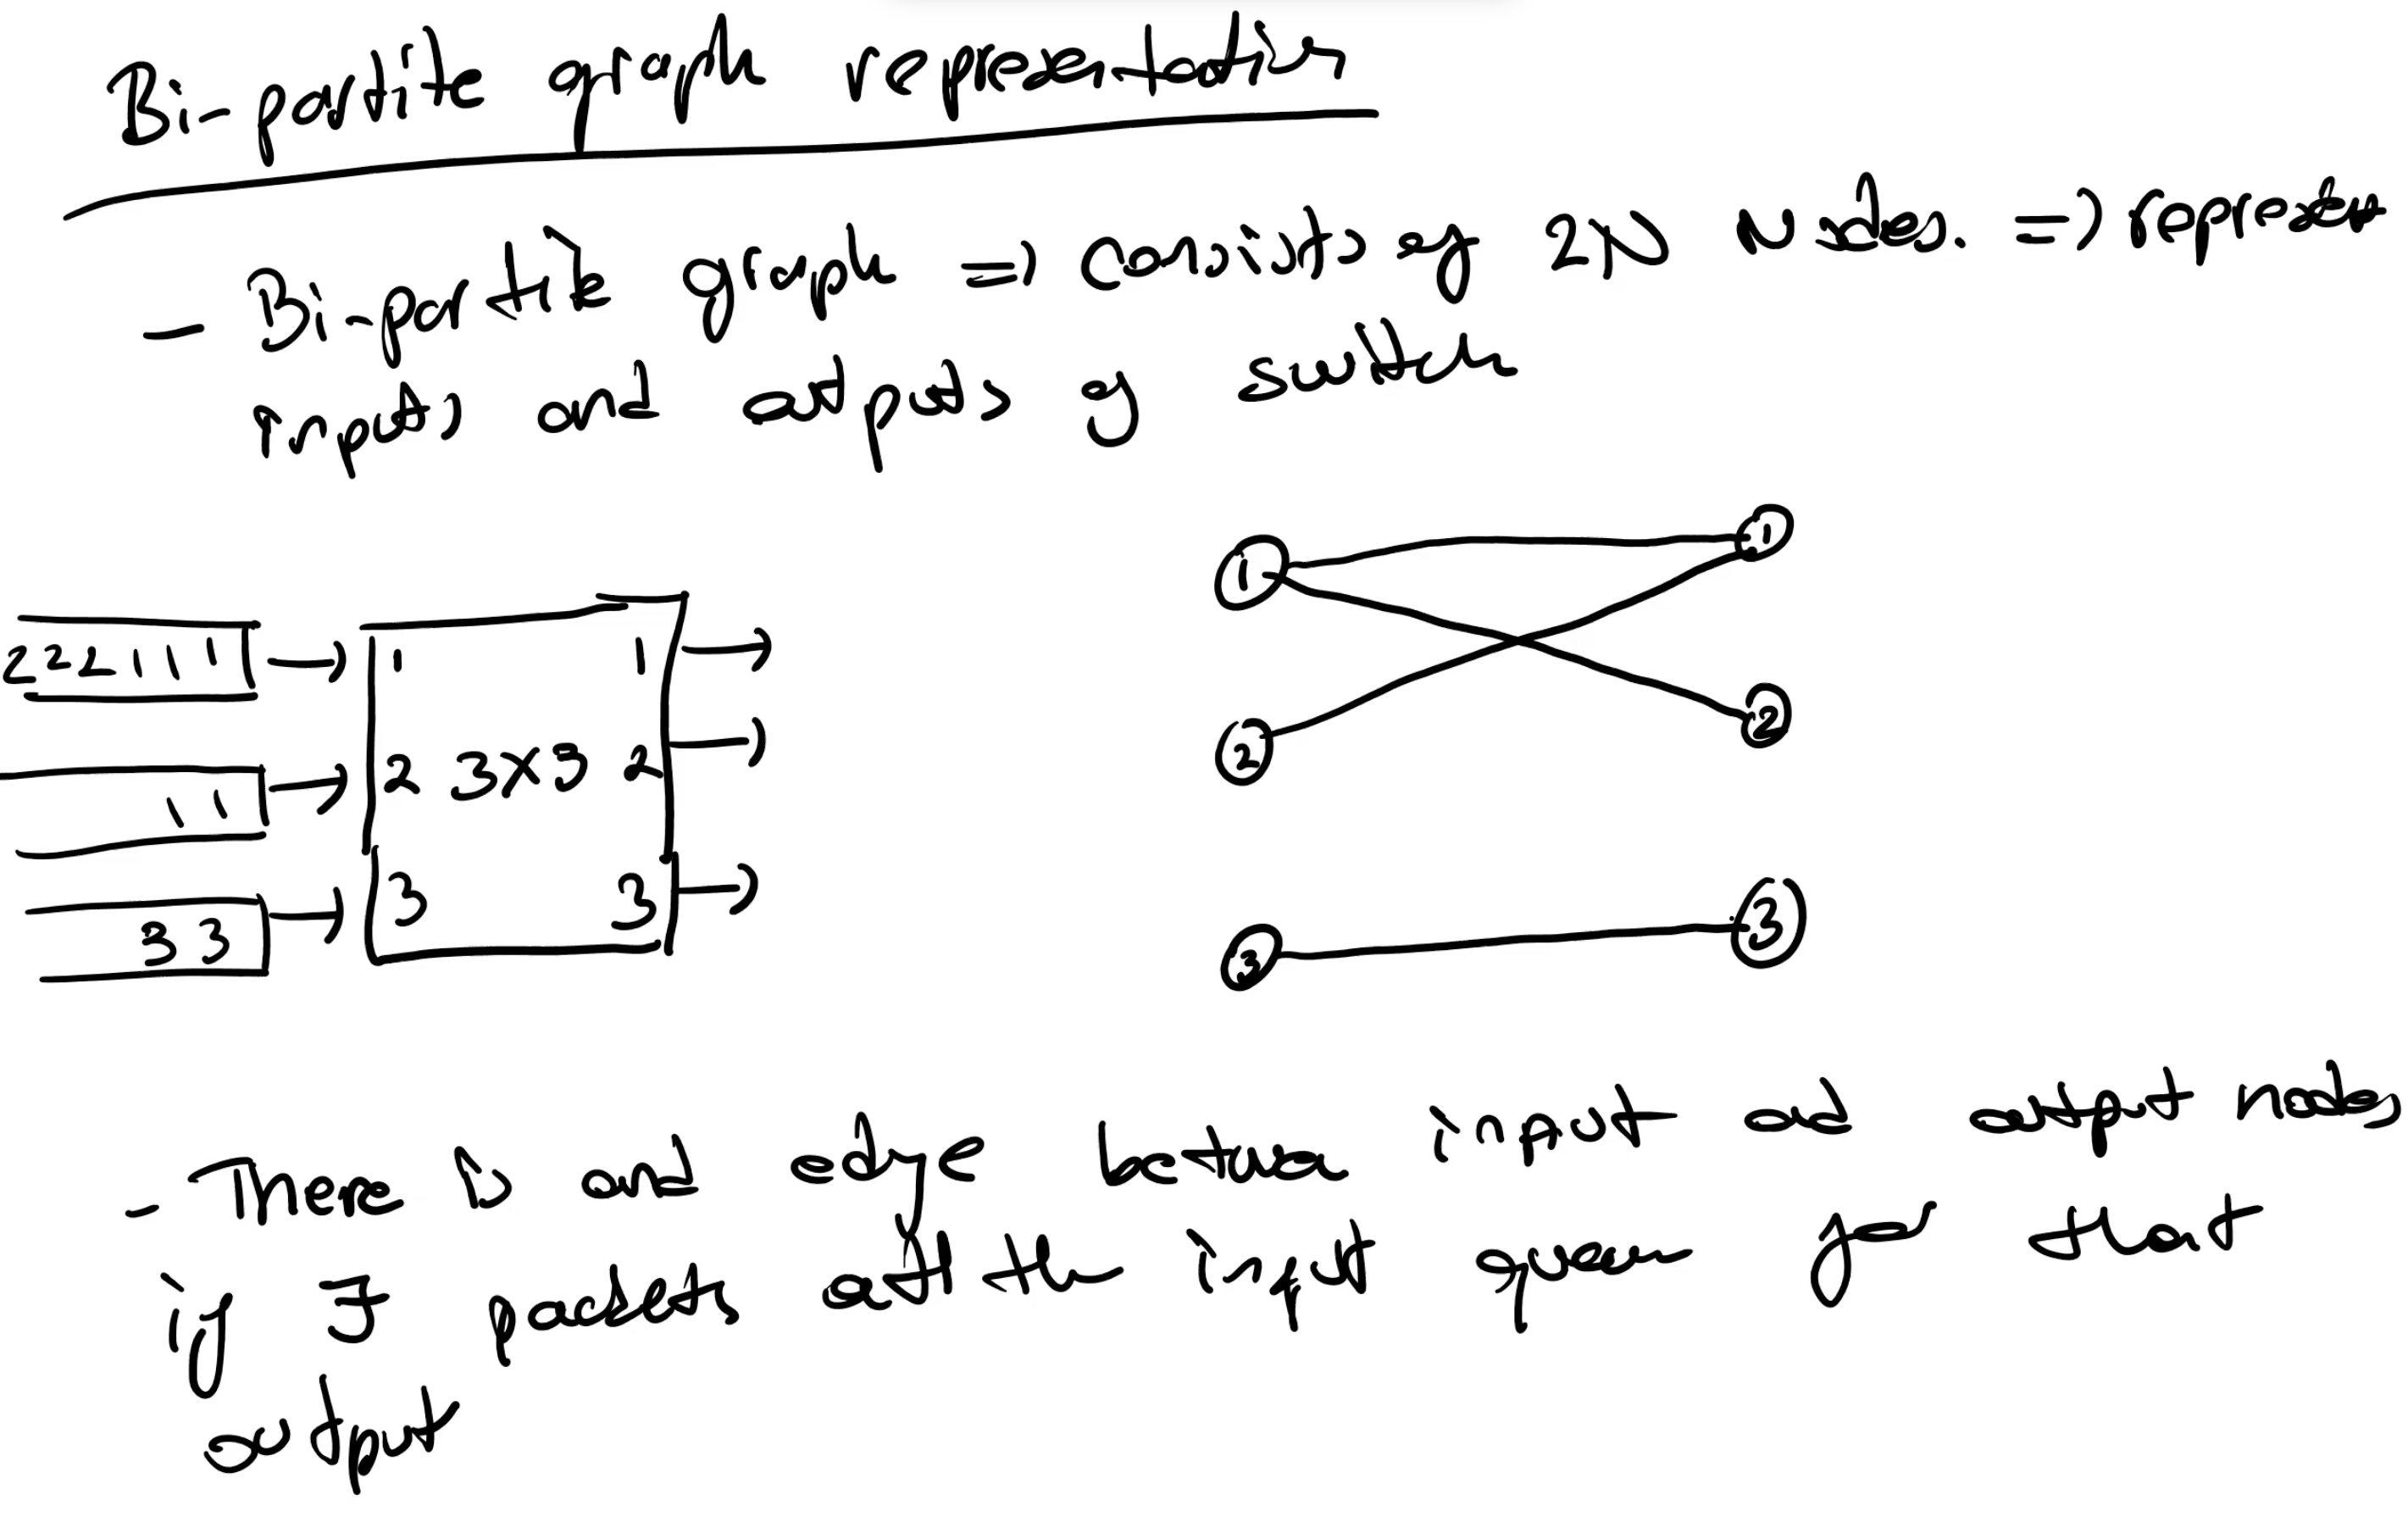 Bi-partite graph representation
- Bi-partite graph => consists of 2N Nodes. => represents
inputs and outputs of switch
1 1
2 2
222111 1 1
11 2 3X3 2
33 3 3
3 3
- There is and edge between input and output nodes
if ∃ packets at the input queue for that
output